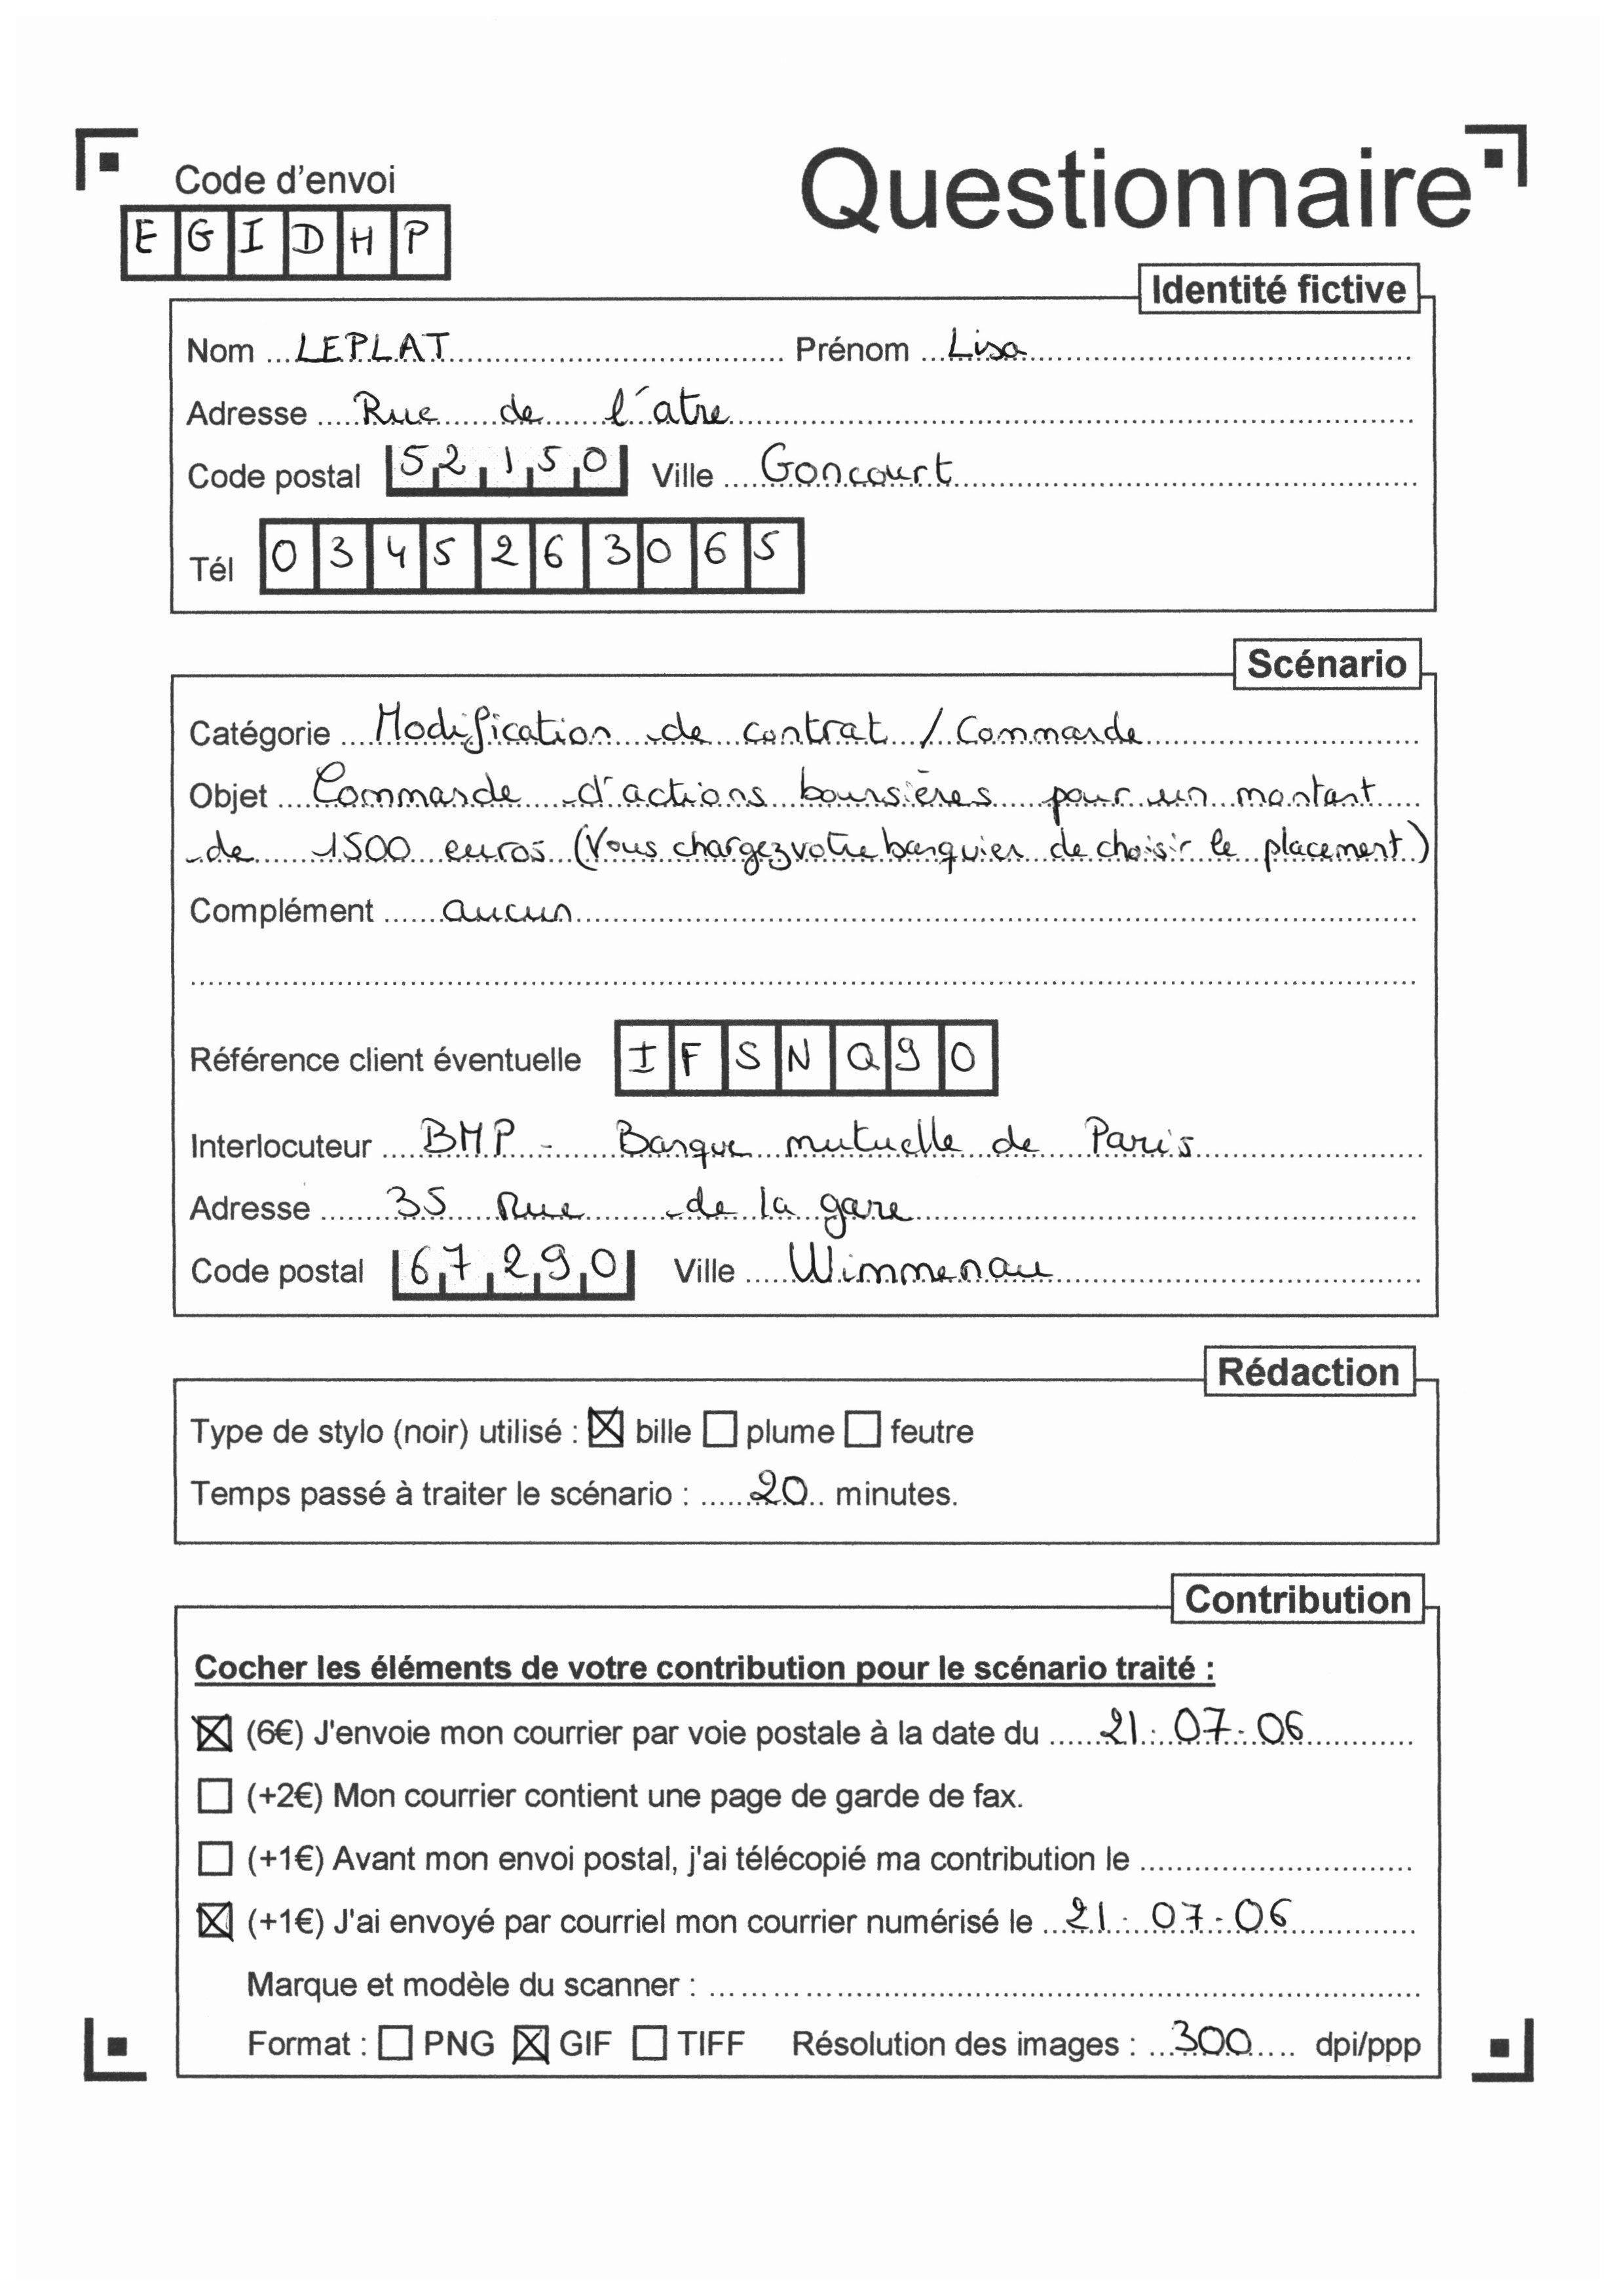 Code d'envoi
Questionnaire
EGIDHP
Identité fictive
Nom LEPLAT Prénom Lisa
Adresse Rue de l'atre
Code postal 52150 Ville Goncourt
Tél 0345263065
Scénario
Catégorie Modification de contrat / Commande
Objet Commande d'actions boursières pour un montant
de 1500 euros (Vous chargez votre banquier de choisir le placement)
Complément aucun
Référence client éventuelle IFSNQ90
Interlocuteur BMP - Banque mutuelle de Paris
Adresse 35 Rue de la gare
Code postal 67290 Ville Wimmenau
Rédaction
Type de stylo (noir) utilisé : ☒ bille ☐ plume ☐ feutre
Temps passé à traiter le scénario : 20 minutes.
Contribution
Cocher les éléments de votre contribution pour le scénario traité :
☒ (6€) J'envoie mon courrier par voie postale à la date du 21.07.06
☐ (+2€) Mon courrier contient une page de garde de fax.
☐ (+1€) Avant mon envoi postal, j'ai télécopié ma contribution le
☒ (+1€) J'ai envoyé par courriel mon courrier numérisé le 21.07.06
Marque et modèle du scanner :
Format : ☐ PNG ☒ GIF ☐ TIFF Résolution des images : 300 dpi/ppp